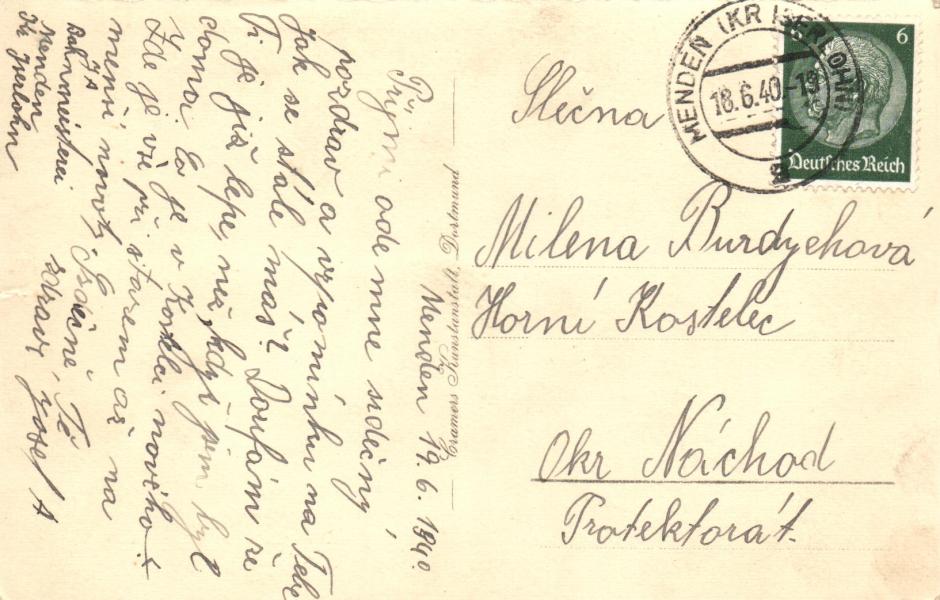 Menden 19. 6. 1940.
Přijmi ode mne srdečný
pozdrav a vzpomínku na Tebe
jak se stále máš? Doufám že
Ti je již lépe, než když jsem byl
doma. Co je v Kostelci nového?
Zde je vše při starem až na
menší novoty. Srdečně Tě
zdraví Josef A
J A
Bahnmeisterei
Menden
Kr Iserlohn
Cramers Kunstanstalt, Dortmund
MENDEN (KR ISERLOHN)
18.6.40.-19
a
6
Deutsches Reich
Slečna
Milena Burdychová
Horní Kostelec
Okr Náchod
Protektorát.